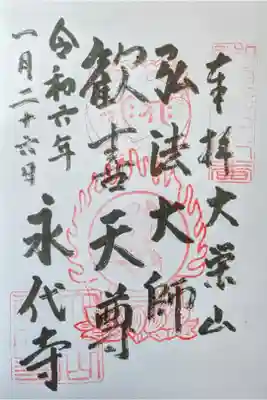 奉拝 大栄山
弘法大師
歓喜天尊
永代寺
令和六年
一月二十六日